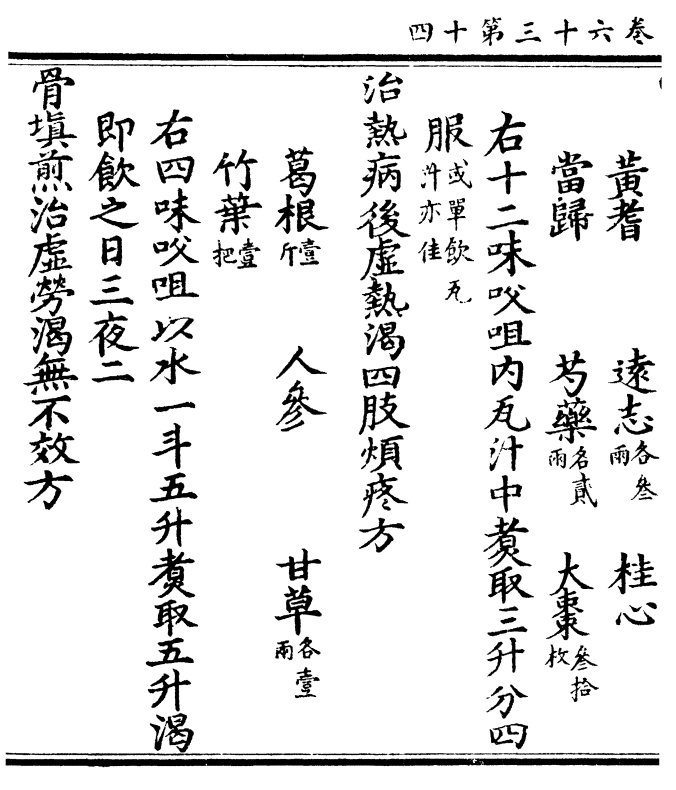 卷六十三第十四
黃耆 遠志各叁兩 桂心
當歸 芍藥各貳兩 大棗叁拾枚
右十二味㕮咀内瓦汁中煑取三升分四
服或單飲瓦汁亦佳
治熱病後虛熱渴四肢煩疼方
葛根壹斤 人參 甘草各壹兩
竹葉壹把
右四味㕮咀以水一斗五升煑取五升渴
即飲之日三夜二
骨塡煎治虛勞渴無不效方